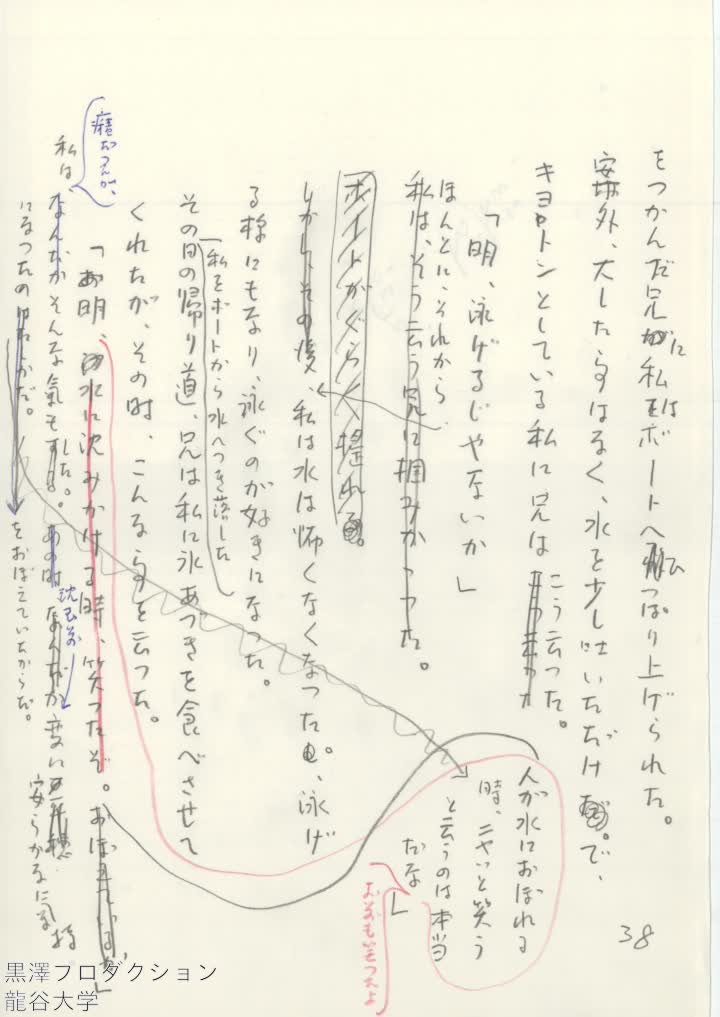 38
をつかんだ兄に私はボートへ引っぱり上げられた。
案外、大した事はなく、水を少し吐いただけで、
キョトンとしている私に兄は
こう云つた。
「明、泳げるじやないか」
ほんとに、それから
私は、そう云う兄に掴みかかつた。
ボートがぐらぐら揺れ
しかし、その後、私は水は怖くなくなつたし、泳げ
る様にもなり、泳ぐのが好きになつた。
「私をボートから水へつき落した
その日の帰り道、兄は私に氷あづきを食べさせて
くれたが、その時、こんな事を云つた。
「明、水に沈みかける時、笑つたぞ。
人が水におぼれる
時、ニヤッと笑う
と云うのは本当
だな」
おまえもいつたよ
癪だつたが、
私は、なんだかそんな気もした。あの時
沈む前
安らかな気持
になつたの
をおぼえていたからだ。
黒澤プロダクション
龍谷大学